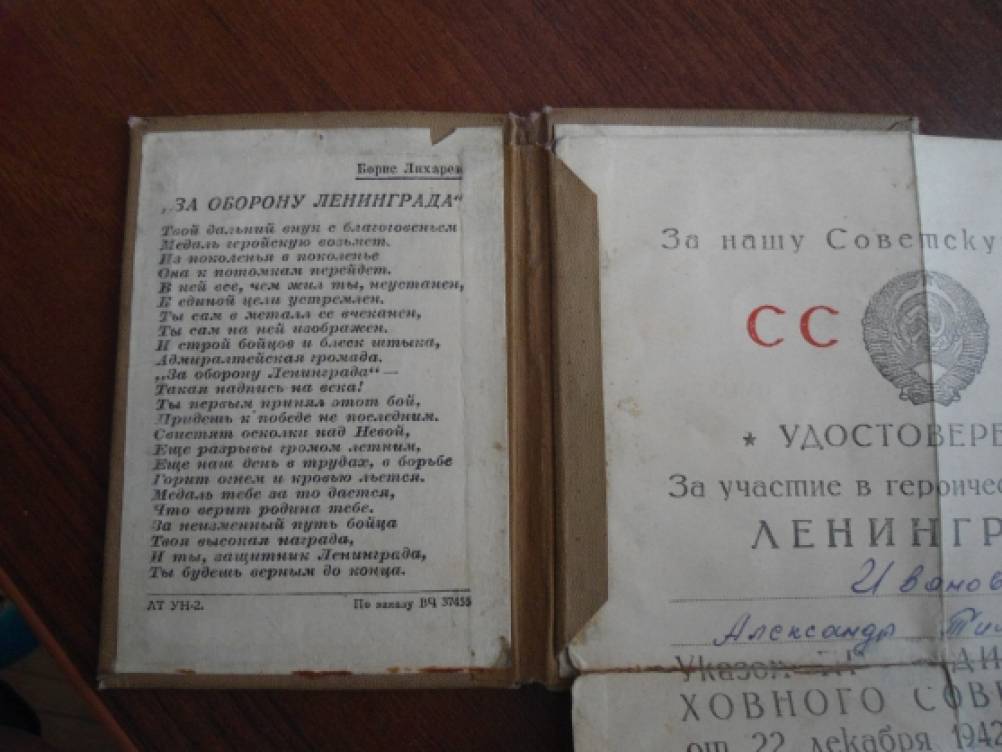 Борис Лихарев
„ЗА ОБОРОНУ ЛЕНИНГРАДА“
Твой дальний внук с благоговеньем
Медаль геройскую возьмет.
Из поколенья в поколенье
Она к потомкам перейдет.
В ней все, чем жил ты, неустанен,
К единой цели устремлен.
Ты сам в металл ее вчеканен,
Ты сам на ней изображен.
И строй бойцов и блеск штыка,
Адмиралтейская громада.
„За оборону Ленинграда“ —
Такая надпись на века!
Ты первым принял этот бой,
Придешь к победе не последним.
Свистят осколки над Невой,
Еще разрывы громом летним,
Еще наш день в трудах, в борьбе
Горит огнем и кровью льется.
Медаль тебе за то дается,
Что верит родина тебе.
За неизменный путь бойца
Твоя высокая награда,
И ты, защитник Ленинграда,
Ты будешь верным до конца.
ЛТ УН-2. По заказу ВЧ 37455
За нашу Советску
СС
★ УДОСТОВЕРЕ
За участие в героичес
ЛЕНИНГР
Иванов
Александр Ти
Указом
ХОВНОГО СОВ
от 22 декабря 1942